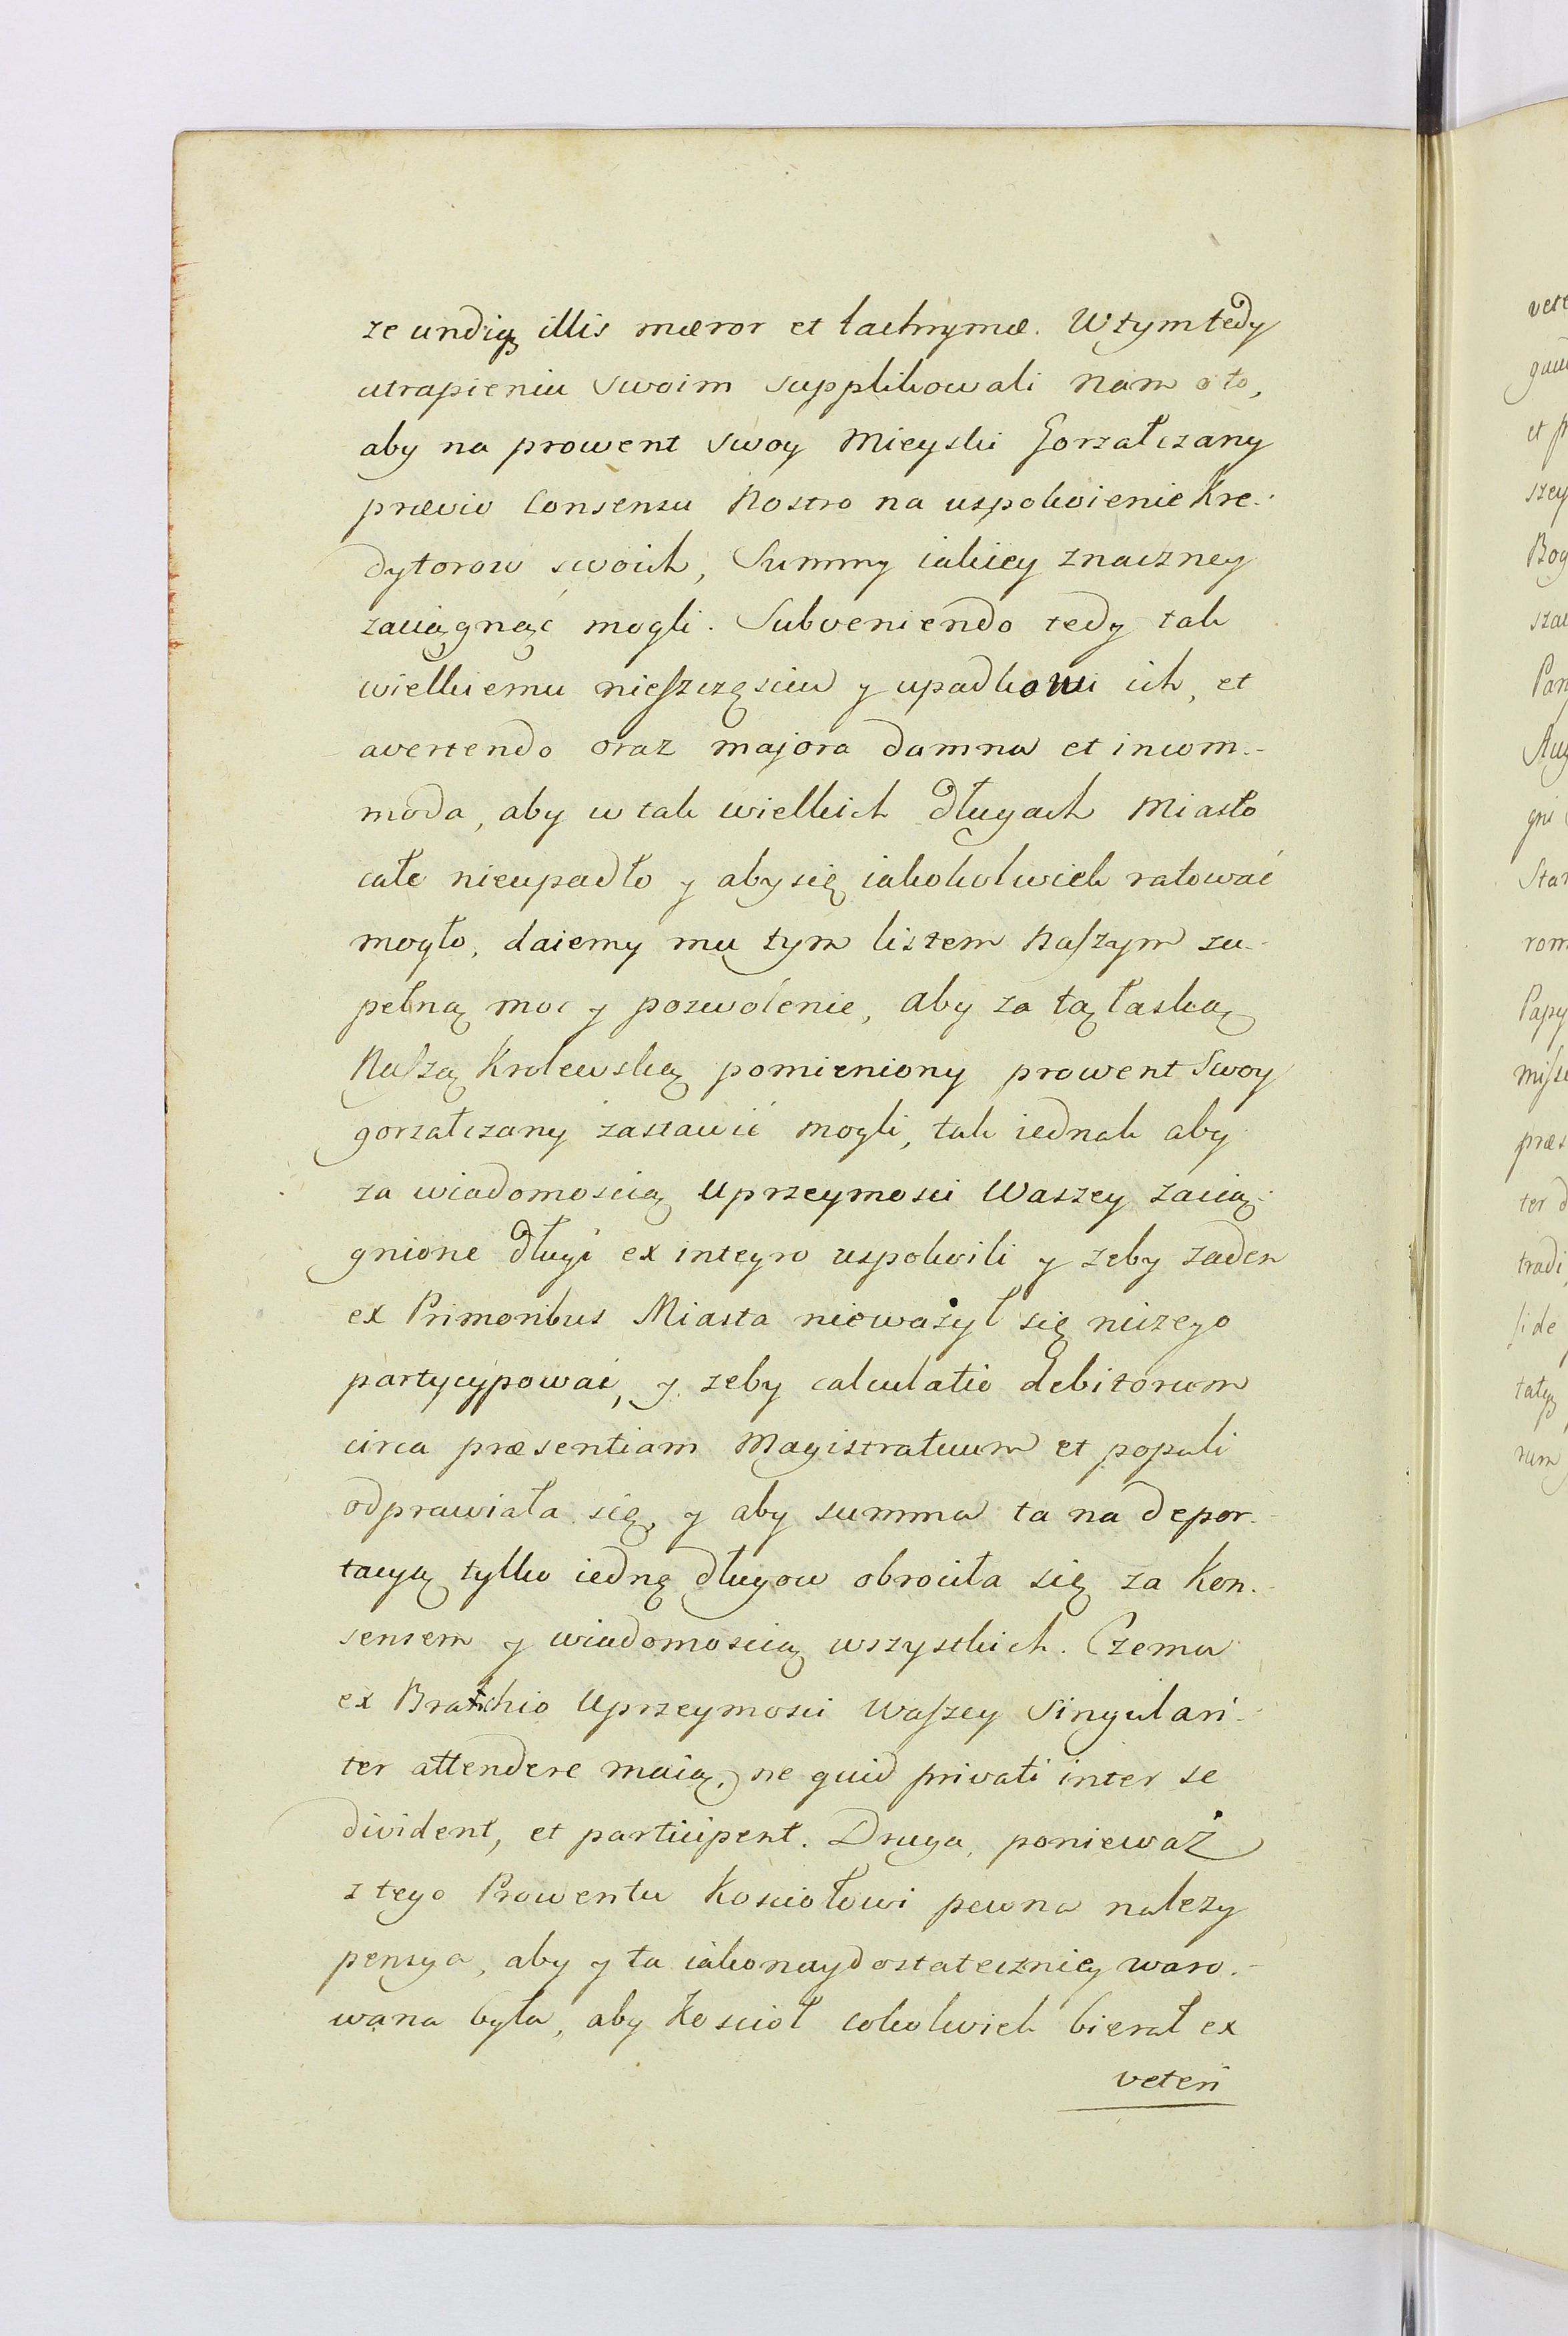 ze undiq illis mœror et lachrymæ. W tym tedy
utrapieniu swoim supplikowali Nam o to,
aby na prowent swoy Mieyski Gorzałczany
prævio Consensu Nostro na uspokoienie Kre-
dytorow swoich, Summy iakiey znaczney
zaciągnąć mogli. Subveniendo tedy tak
wielkiemu nieszczęsciu y upadkowi ich, et
avertendo oraz majora damna et incom-
moda, aby w tak wielkich Długach Miasto
całe nieupadło y aby się iakokolwiek ratować
mogło, daiemy mu tym listem Naszym zu-
pełną moc y pozwolenie, aby za tą łaską
Naszą Krolewską pomieniony prowent Swoy
gorzałczany zastawić mogli, tak iednak aby
za wiadomoscią Uprzeymosci Waszey zacią-
gnione Długi ex integro uspokoili y zeby zaden
ex Primoribus Miasta nieważył się niczego
partycypować, y zeby calculatio debitorum
circa præsentiam Magistratuum et populi
odprawiała się, y aby summa ta na depor-
tacyą tylko iednę Długow obrociła się za Kon-
sensem y wiadomoscią wszystkich. Czemu
ex Brachio Uprzeymosci Waszey Singulari-
ter attendere maią, ne quid privati inter se
divident, et participent. Druga, ponieważ
z tego Prowentu Kosciołowi pewna nalezy
pensya, aby y ta iako naydostateczniey waro-
wana była, aby Koscioł cokolwiek bierał ex
veteri
vete
gau
et p
szey
Bog
sza
Pan
Aug
gni
Star
rom
Papy
misse
præs
ter d
tradi
side
taty
rum